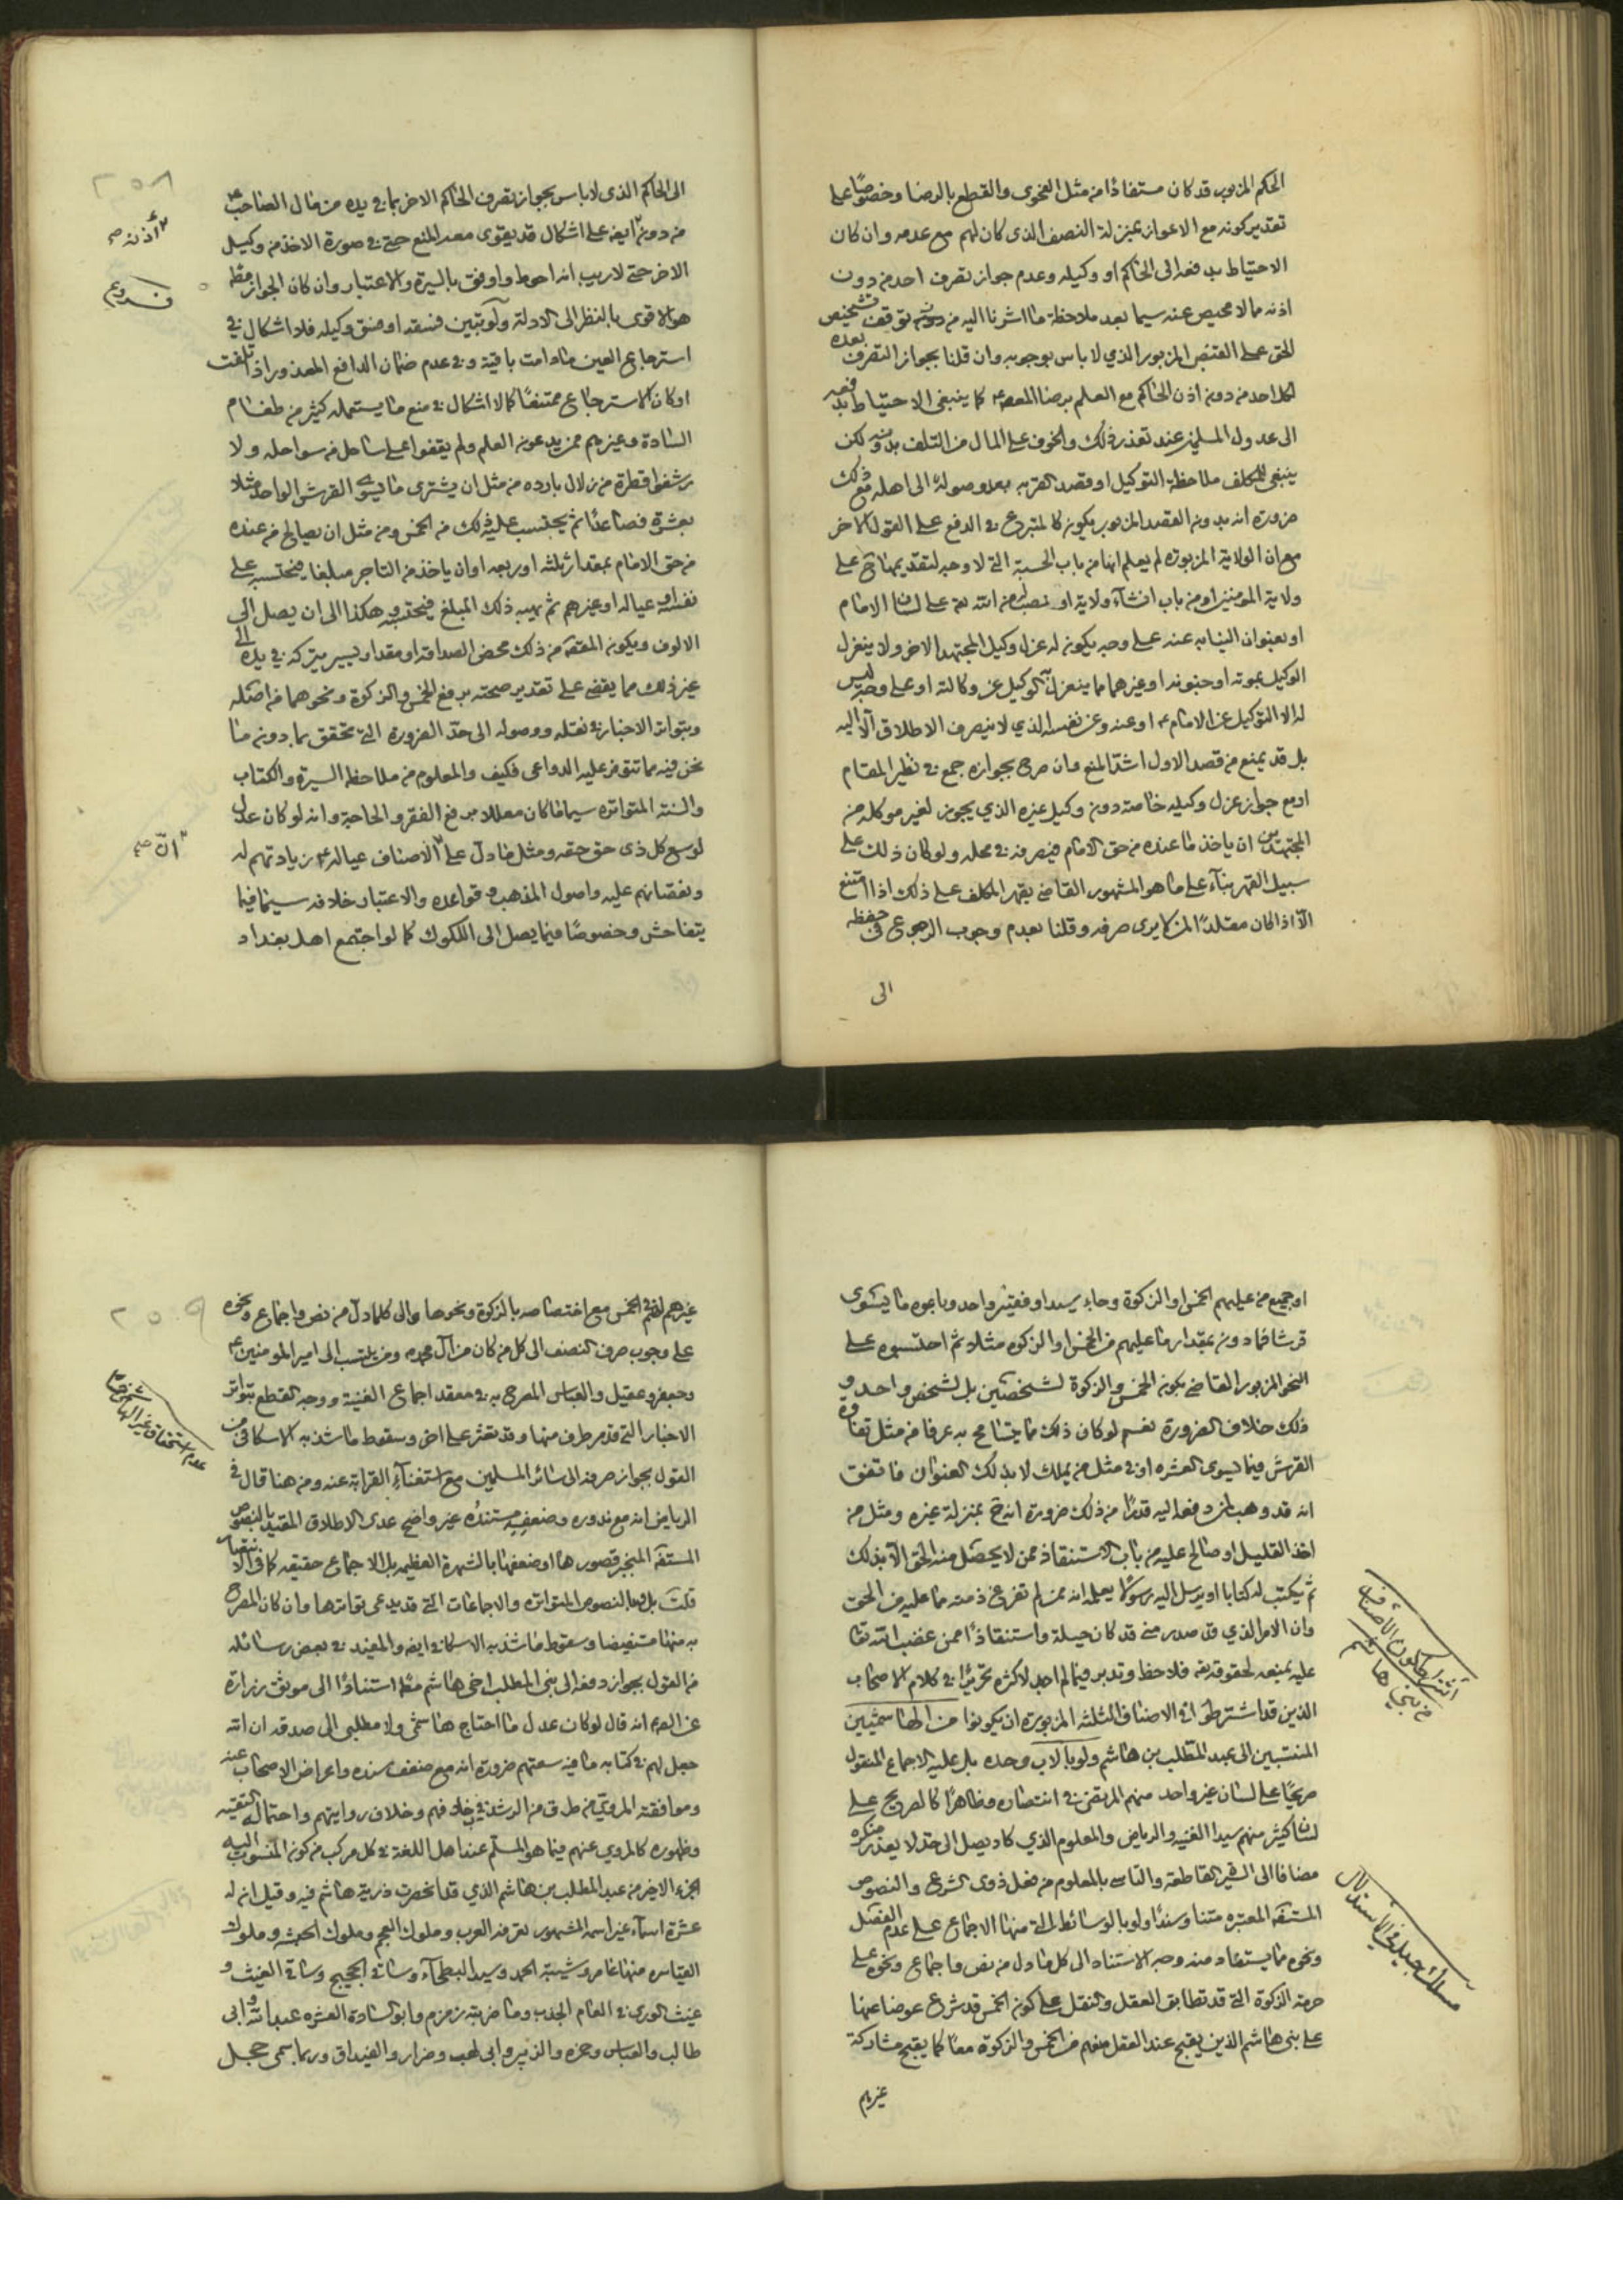 الحكم المزبور قد كان مستفادا من مثل الفحوى والقطع بالرضا وخصوصًا على
تقدير كونه مع الاعواز بمنزلة النصف الذى كان لهم مع عدمه وان كان
الاحتياط بدفعه الى الحاكم او وكيله وعدم جواز تصرف احد من دون
اذنه مما لا محيص عنه سيما بعد ملاحظة ما اشرنا اليه من توقف تشخيص
الحق على القبض المزبور الذي لا باس بوجوبه وان قلنا بجواز التصرف بعده
لكل احد من دون اذن الحاكم مع العلم برضا المعصوم كما ينبغى الاحتياط بدفعه
الى عدول المسلمين عند تعذر ذلك والخوف على المال من التلف بدونه لكن
ينبغى للمكلف ملاحظة التوكيل او قصد القربه بعد وصوله الى اهله مع ذلك
ضرورة انه بدون القصد المزبور يكون كالمتبرع في الدفع على القول الاخر
مع ان الولاية المزبورة لم يعلم انها من باب الحسبة التى لا وجه لتقديمها ح على
ولاية المومنين او من باب انشاء ولاية او نصب من الله تعالى على لسان الامام
او بعنوان النيابه عنه على وجه يكون له عزل وكيل المجتهد الاخر ولا ينعزل
الوكيل بموته او جنونه او غيرهما مما ينعزل به الوكيل عن وكالته او على وجه ليس
له الا التوكيل عن الامام او عنه وعن نفسه الذي لا ينصرف الاطلاق الا اليه
بل قد يمنع من قصد الاول اشد المنع وان صرح بجوازه جمع في نظير المقام
او مع جواز عزل وكيله خاصة دون وكيل غيره الذي يجوز لغير موكله من
المجتهدين ان ياخذ ما عنده من حق الامام فيصرفه في محله ولو كان ذلك على
سبيل القهر بناء على ما هو المشهور القاضي بقهر المكلف على ذلك اذا امتنع
الا اذا كان مقلدًا لمن لا يرى صرفه وقلنا بعدم وجوب الرجوع في حفظه
الى
٢٥٨
الى الحاكم الذى لا باس بجواز تصرف الحاكم الاخر بما في يده من مال الصاحب
من دون ايضا على اشكال قد يقوى معه المنع حتى في صورة الاخذ من وكيل
الاخر حتى لا ريب انه احوط واوفق بالسيرة والاعتبار وان كان الجواز مطلقا
هو الاقوى بالنظر الى الادلة ولو تبين فسقه او فسق وكيله فلا اشكال في
استرجاع العين مادامت باقية وفي عدم ضمان الدافع المعذور اذا تلفت
او كان الاسترجاع ممتنعًا كما لا اشكال في منع ما يستعمله كثير من طغام
السادة وغيرهم ممن يدعون العلم ولم يقفوا على ساحل من سواحله ولا
رشفوا قطرة من زلال بارده من مثل ان يشترى ما يسوى القرش الواحد مثلا
بعشرة فصاعدًا ثم يحتسب عليه ذلك من الخمس ومن مثل ان يصالح من عنده
من حق الامام بمقدار ثلثه او ربعه او ان ياخذ من التاجر مبلغا فيحتسبه على
نفسه او عياله او غيرهم ثم يهبه ذلك المبلغ فيحتسبه هكذا الى ان يصل الى
الالوف ويكون المقصد من ذلك محض الصداقة او مقدار يسير يتركه في يده الى
غير ذلك مما يقضى على تقدير صحته برفع الخمس والزكوة ونحوهما من اصله
وبتواتر الاخبار في نقله ووصوله الى حد الضرورة التى تحقق بما دون ما
نحن فيه مما تتوفر عليه الدواعى فكيف والمعلوم من ملاحظة السيرة والكتاب
والسنه المتواتره سيما ما كان معللا برفع الفقر والحاجة وانه لو كان عدل
لوسع كل ذى حق حقه ومثل ما دل على الاصناف عياله في زيادتهم له
ونقصانهم عليه واصول المذهب وقواعده والاعتبار خلافه سيما فيما
يتفاحش وخصوصًا فيما يصل الى اللكوك كما لو اجتمع اهل بغداد
او جميع من عليهم الخمس او الزكوة وجاء سيد او فقير واحد وباعوه ما يسوى
قرشا فما دون بمقدار ما عليهم من الخمس او الزكوه مثلا ثم احتسبوه على
النحو المزبور القاضي بكون الخمس والزكوة لشخصين بل لشخص واحد و
ذلك خلاف الضرورة نعم لو كان ذلك مما يتسامح به عرفا من مثل تفاوة
القرش فيما يسوى العشره او في مثل من يملك لا بذلك العنوان فاتفق
انه قد وهب لمن دفعه اليه قدرًا من ذلك ضرورة انه ح بمنزلة غيره ومثل من
اخذ القليل او صالح عليه من باب الاستنقاذ ممن لا يحصل منه الحق الا بذلك
ثم يكتب له كتابا او يرسل اليه رسولا يعلمه انه ممن لم تفرغ ذمته مما عليه من الحق
وان الامر الذي قد صدر مني قد كان حيلة واستنقاذًا ممن غضب الله تعا
عليه بمنعه لحقوقه فلاحظ وتدبر فيما لم اجد لاكثره تحريرًا في كلام الاصحاب
الذين قد اشترطوا في الاصناف الثلثه المزبورة ان يكونوا من الهاشميين
المنتسبين الى عبد المطلب بن هاشم ولو بالاب وحده بل عليه الاجماع المنقول
صريحًا على لسان غير واحد منهم المرتضى في انتصاره وظاهرًا كالصريح على
لسان كثير منهم سيدا الغنيه والرياض والمعلوم الذي كاد يصل الى حد لا يعذر منكره
مضافا الى السيرة القاطعة والتاسى بالمعلوم من فعل ذوى الشرع والنصوص
المستفيضه المعتبره متنا وسندًا ولو بالوسائط التى منها الاجماع على عدم الفصل
ونحوه مما يستفاد منه وجه الاستناد الى كل ما دل من نص واجماع ونحوه على
حرمة الزكوة التى قد تطابق العقل والنقل على كون الخمس قد شرع عوضا عنها
على بنى هاشم الذين يقبح عند العقل منعهم من الخمس والزكوة معًا كما يقبح مشاركة
غيرهم
اشتراط كون الاصناف
من بني هاشم
مسلك جميل في الاستدلال
٢٥٩
غيرهم لهم في الخمس مع اختصاصه بالزكوة ونحوها والى كلما دل من نص واجماع ونحوه
على وجوب صرف النصف الى كل من كان من آل محمد ومن ينتسب الى امير المومنين
وجعفر وعقيل والعباس المصرح به في معقد اجماع الغنية ووجه القطع بتواتر
الاخبار التى قد مر طرف منها وقد تعثر على اخر وسقوط ما شذ به الاسكافى من
القول بجواز صرفه الى سائر المسلمين مع استغناء القرابة عنه ومن هنا قال في
الرياض انه مع ندوره وضعف مستنده غير واضح عدى الاطلاق المقيد بالنصوص
المستفيضة المنجبر قصورها او ضعفها بالشهرة العظيمه بل الاجماع حقيقه كما في الانتصار
قلت بل وبالنصوص المتواتره والاجماعات التى قد يدعى تواترها وان كان المصرح
به منها مستفيضا وسقوط ما شذ به الاسكافى ايضا والمفيد في بعض رسائله
من القول بجواز دفعه الى بنى المطلب اخى هاشم استنادًا الى موثق زرارة
عن الصادق انه قال لو كان عدل ما احتاج هاشمى ولا مطلبى الى صدقه ان الله
جعل لهم في كتابه ما فيه سعتهم ضرورة انه مع ضعف سنده واعراض الاصحاب عنه
وموافقته المروى من طرق من الرشد في خلافهم وخلاف روايتهم واحتمال التقيه
وظهوره كالمروي عنهم فيما هو المسلم عند اهل اللغة في كل مركب من كون المنسوب اليه
الجزء الاخير من عبد المطلب بن هاشم الذي قد انحصرت ذرية هاشم فيه وقيل ان له
عشرة اسماء غير اسمه المشهور تعرفه العرب وملوك العجم وملوك الحبشه وملوك
القياصره منها عامر وشيبة الحمد وسيد البطحاء وساقى الحجيج وساقى الغيث و
غيث الورى في العام الجدب وحافر زمزم وابو السادة العشره عبد الله وابى
طالب والعباس وحمزه والزبير وابى لهب وضرار والغيداق وربما سمى حجل